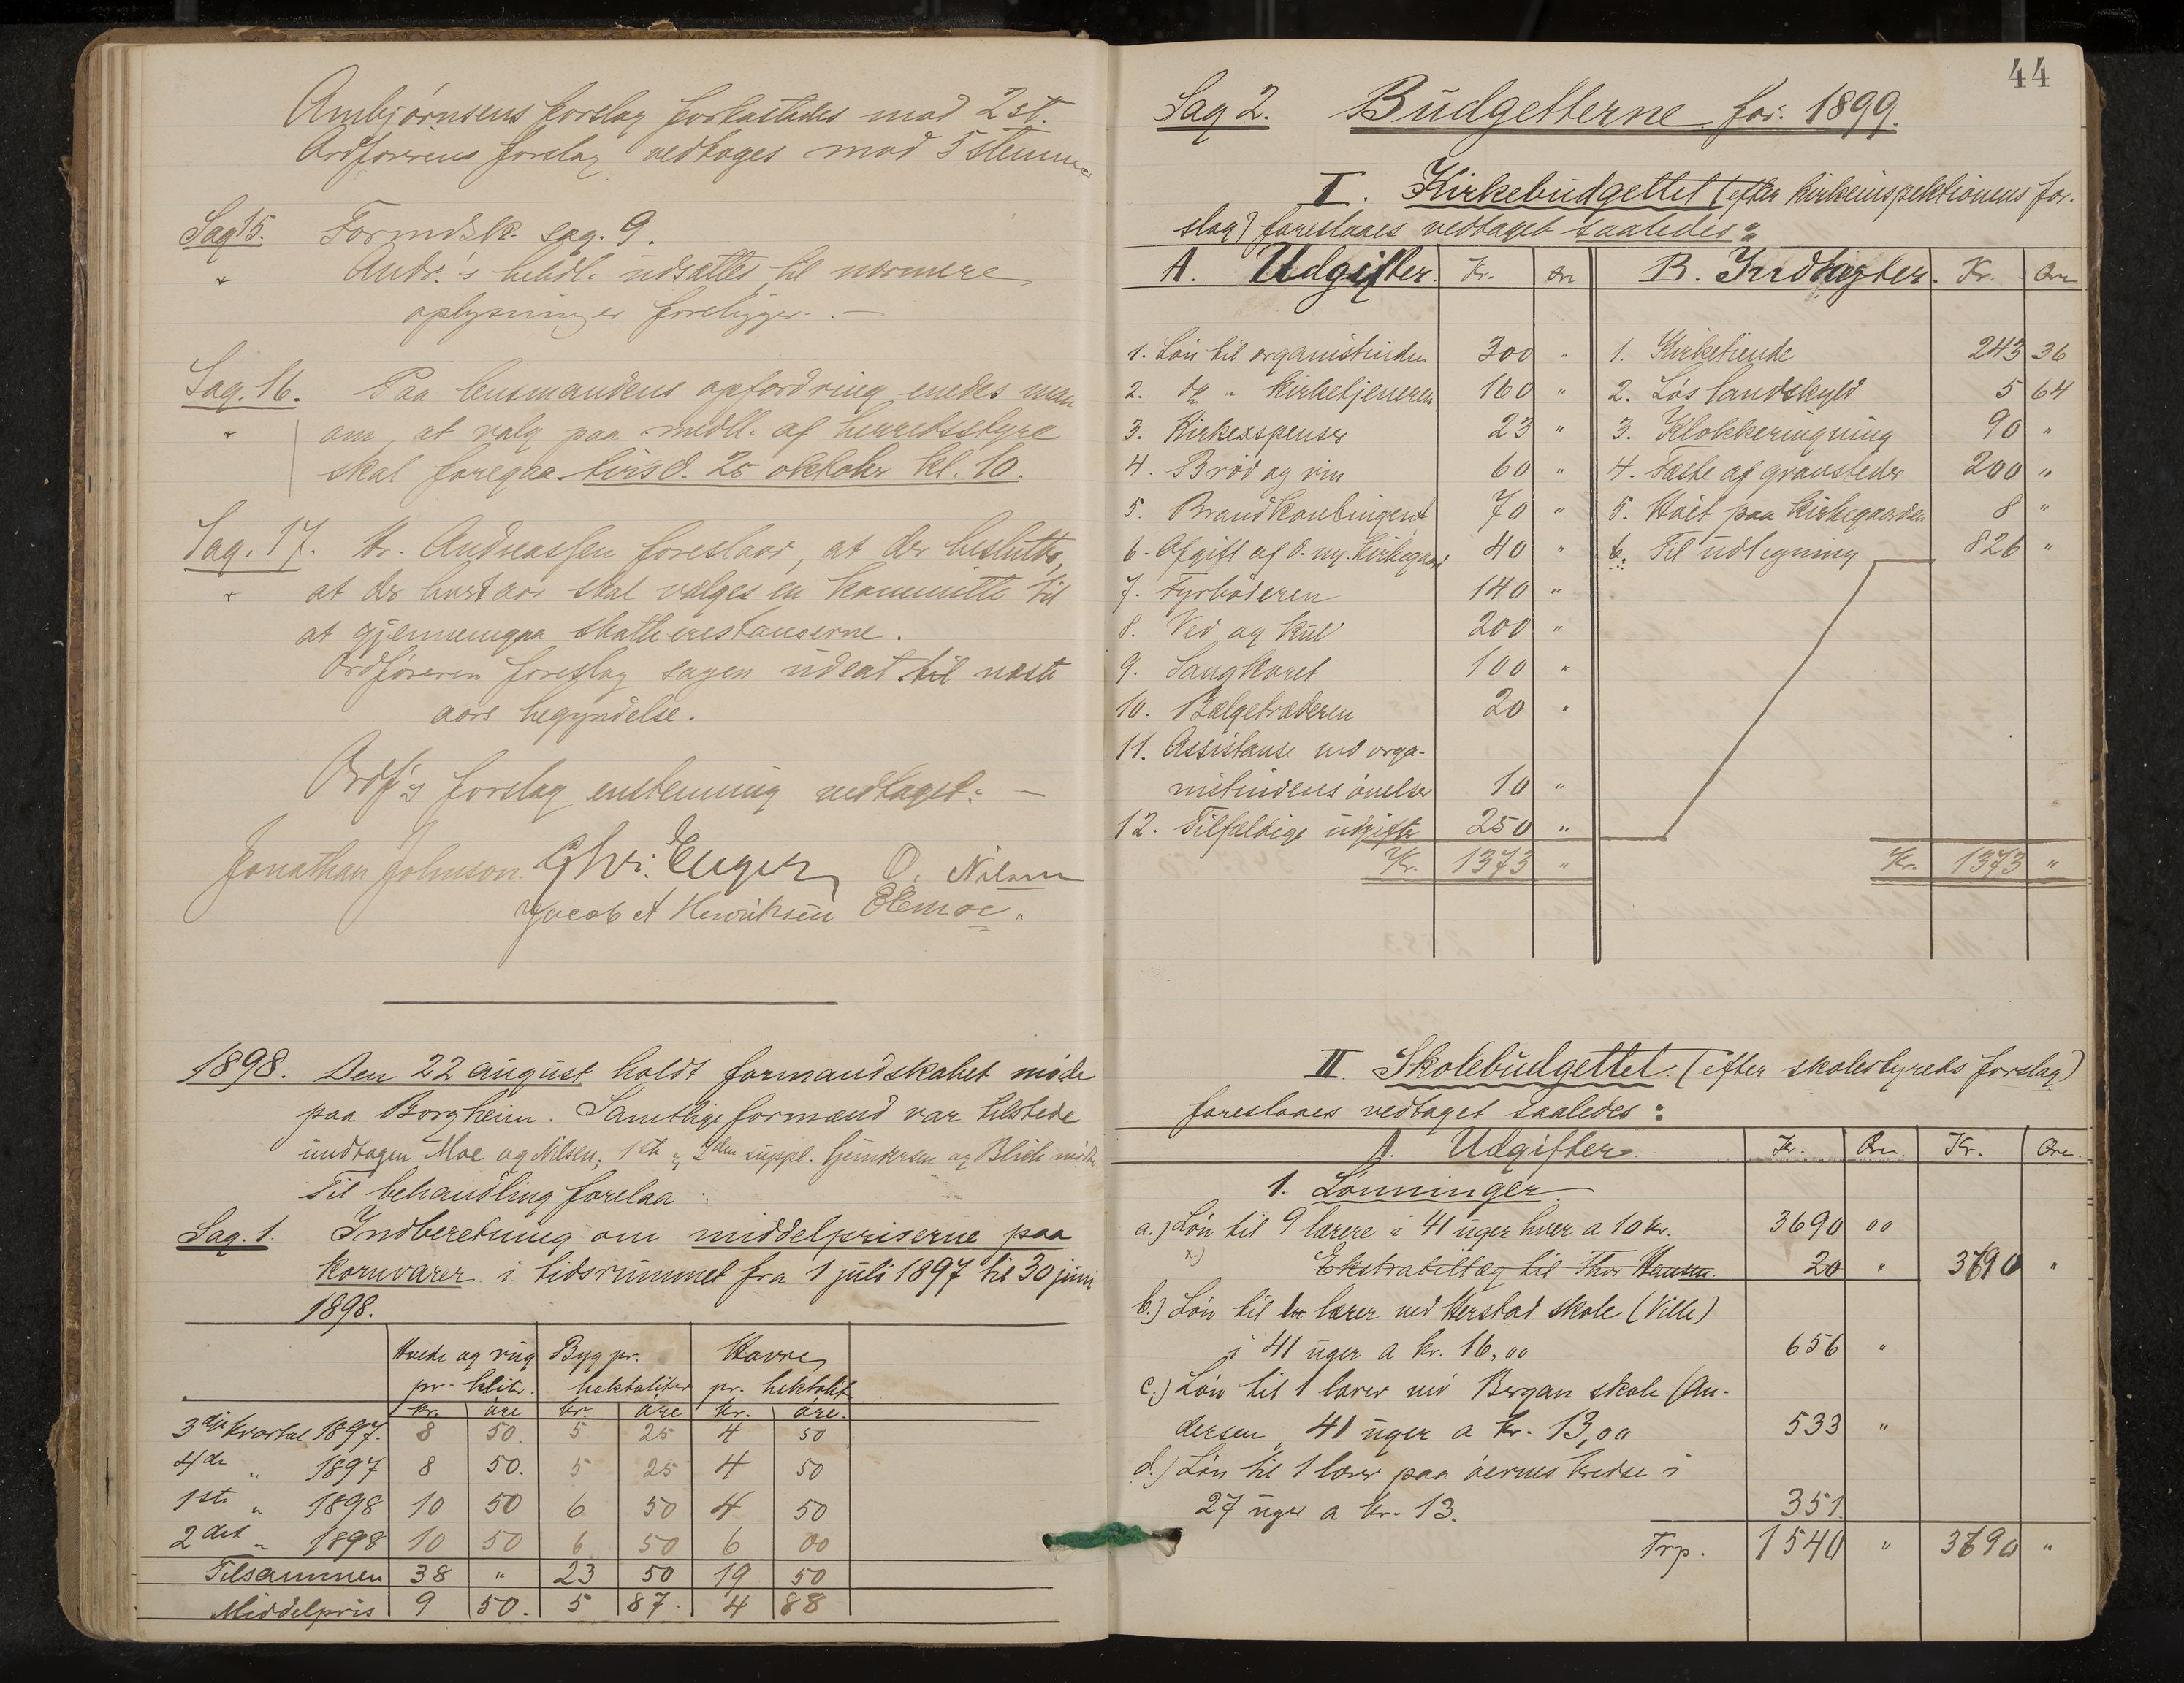 Ambjørnsens forslag forkastedes mod 2 st.
Ordførerens forslag vedtoges mod 5 stemmer
Sag 15. Formdsk. sag. 9.
Andr.'s behdl. udsættes til nærmere
oplysninger foreligger. —
Sag. 16. Paa lensmandens opfordring enedes man
om, at valg paa medll. af herredsstyre
skal foregaa tirsd. 25 oktober kl. 10.
Sag. 17. Hr. Andreassen foreslaar, at der besluttes,
at der hvert aar skal vælges en kommitte til
at gjennemgaa skatterestanserne.
Ordføreren foreslog sagen udsat til næste
aars begyndelse.
Ordf's forslag enstemmig vedtaget. —
Jonathan Johnson. Chr. Enger O. Nilsen
Jacob A Henriksen E Moe.
1898. Den 22 august holdt formandskabet møde
paa Borgheim. Samtlige formænd var tilstede
undtagen Moe og Nilsen; 1ste og 2den suppl. og Blich mødte
Til behandling forelaa:
Sag. 1. Indberetning om middelpriserne paa
kornvarer i tidsrummet fra 1 juli 1897 til 30 juni
1898.
Hvede og rug Byg pr. Havre
pr. hlitr. hektoliter pr. hektolit
kr. øre kr. øre kr. øre.
3dje kvartal 1897. 8 50. 5 25 4 50
4de " 1897 8 50. 5 25 4 50
1ste " 1898 10 50 6 50 4 50
2det " 1898 10 50 6 50 6 00
Tilsammen 38 " 23 50 19 50
Middelpris 9 50. 5 87. 4 88
44
Sag 2. Budgetterne for 1899.
I. Kirkebudgettet (efter kirkeinspektionens for-
slag) foreslaaes vedtaget saaledes:
A. Udgifter. Kr. Øre B. Indtægter. Kr. Øre
1. Løn til organistinden 300 " 1. Kirketiende 243 36
2. do " kirketjeneren 160 " 2. Løs landskyld 5 64
3. Kirkexspenser 23 " 3. Klokkeringning 90 "
4. Brød og vin 60 " 4. Fæste af gravsteder 200 "
5. Brandkontingent 70 " 5. Høiet paa kirkegaarden 8 "
6. Afgift af d. ny. kirkegaard 40 " 6. Til udligning 826 "
7. Fyrbøderen 140 "
8. Ved og kul 200 "
9. Sangkoret 100 "
10. Bælgetræderen 20 "
11. Assistanse ved orga-
nistindens øvelser 10 "
12. Tilfældige udgifter 250 "
Kr. 1373 " Kr. 1373 "
II. Skolebudgettet. (efter skolestyrets forslag)
foreslaaes vedtaget saaledes:
A. Udgifter Kr. Øre. Kr. Øre.
1. Lønninger.
a.) Løn til 9 lærere i 41 uger hver a 10 kr. 3690 00
x.) Ekstratillæg til Thor Hansen. 20 " 3690 "
b.) Løn til lærer ved Herstad skole (Ville)
i 41 uger a kr. 16,00 656 "
c.) Løn til 1 lærer ved Bergan skole (An-
dersen, 41 uger a kr. 13,00 533 "
d.) Løn til 1 lærer paa øernes kredse i
27 uger a kr. 13. 351
Trp. 1540 " 3690 "